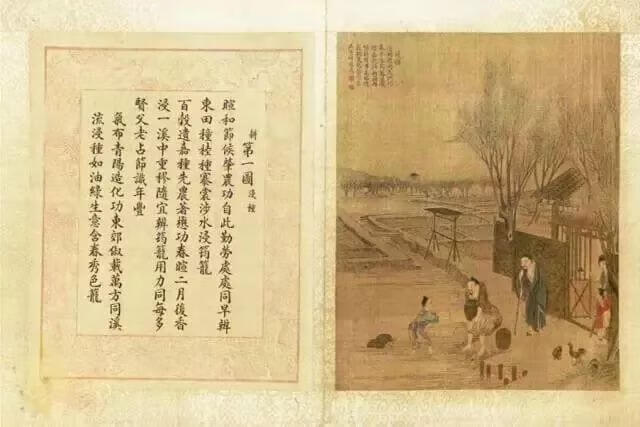 耕第一圖 浸種
暄和節候肇農功自此勤勞處處同早辨
東田穜稑種褰裳涉水浸筠籠
百穀遺嘉種先農著懋功春暄二月後香
浸一溪中重穋隨宜辨筠籠用力同每多
賢父老占節識年豐
氣布青陽造化功東郊俶載萬方同溪
流浸種如油綠生意含春秀色籠